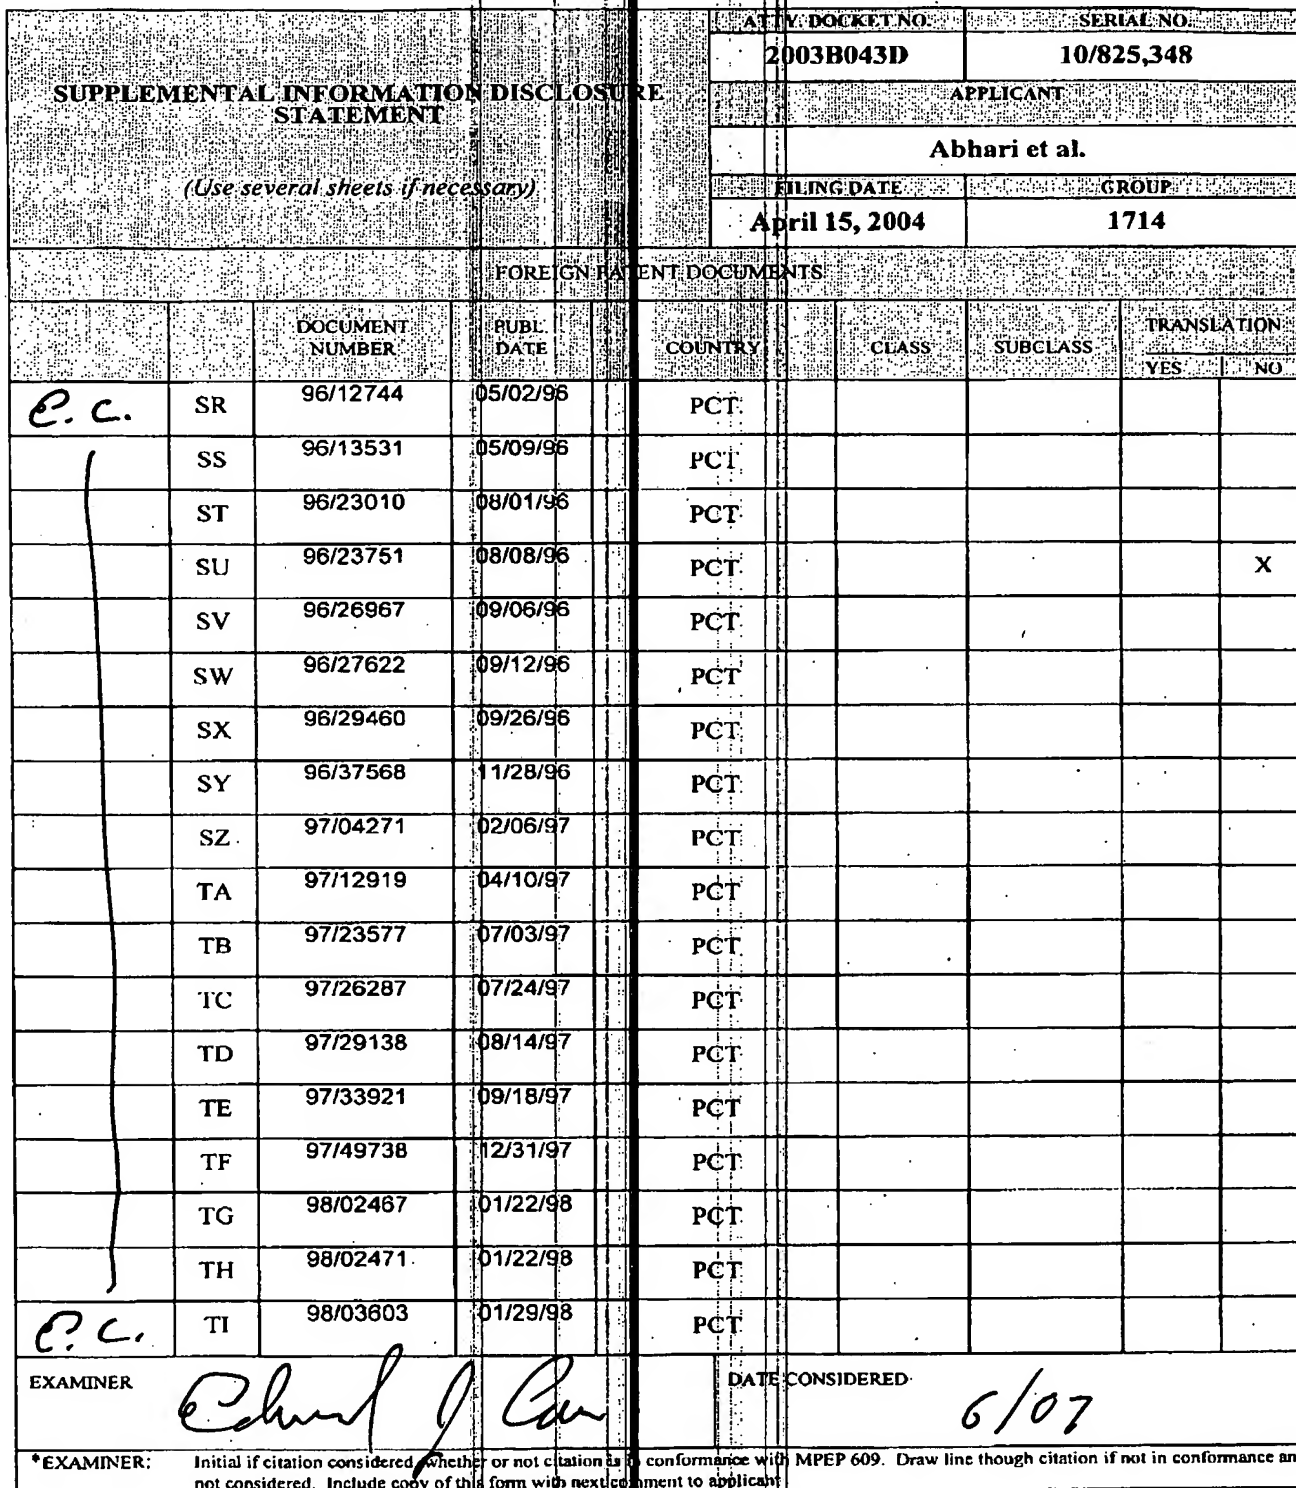 ATTY. DOCKET NO. SERIAL NO.
2003B043D 10/825,348
SUPPLEMENTAL INFORMATION DISCLOSURE
STATEMENT
(Use several sheets if necessary)
APPLICANT
Abhari et al.
FILING DATE GROUP
April 15, 2004 1714
FOREIGN PATENT DOCUMENTS
DOCUMENT NUMBER PUBL. DATE COUNTRY CLASS SUBCLASS TRANSLATION
YES NO
e.c. SR 96/12744 05/02/96 PCT
SS 96/13531 05/09/96 PCT
ST 96/23010 08/01/96 PCT
SU 96/23751 08/08/96 PCT X
SV 96/26967 09/06/96 PCT
SW 96/27622 09/12/96 PCT
SX 96/29460 09/26/96 PCT
SY 96/37568 11/28/96 PCT
SZ 97/04271 02/06/97 PCT
TA 97/12919 04/10/97 PCT
TB 97/23577 07/03/97 PCT
TC 97/26287 07/24/97 PCT
TD 97/29138 08/14/97 PCT
TE 97/33921 09/18/97 PCT
TF 97/49738 12/31/97 PCT
TG 98/02467 01/22/98 PCT
TH 98/02471 01/22/98 PCT
e.c. TI 98/03603 01/29/98 PCT
EXAMINER DATE CONSIDERED 6/07
*EXAMINER: Initial if citation considered, whether or not citation is in conformance with MPEP 609. Draw line though citation if not in conformance an
not considered. Include copy of this form with next comment to applicant